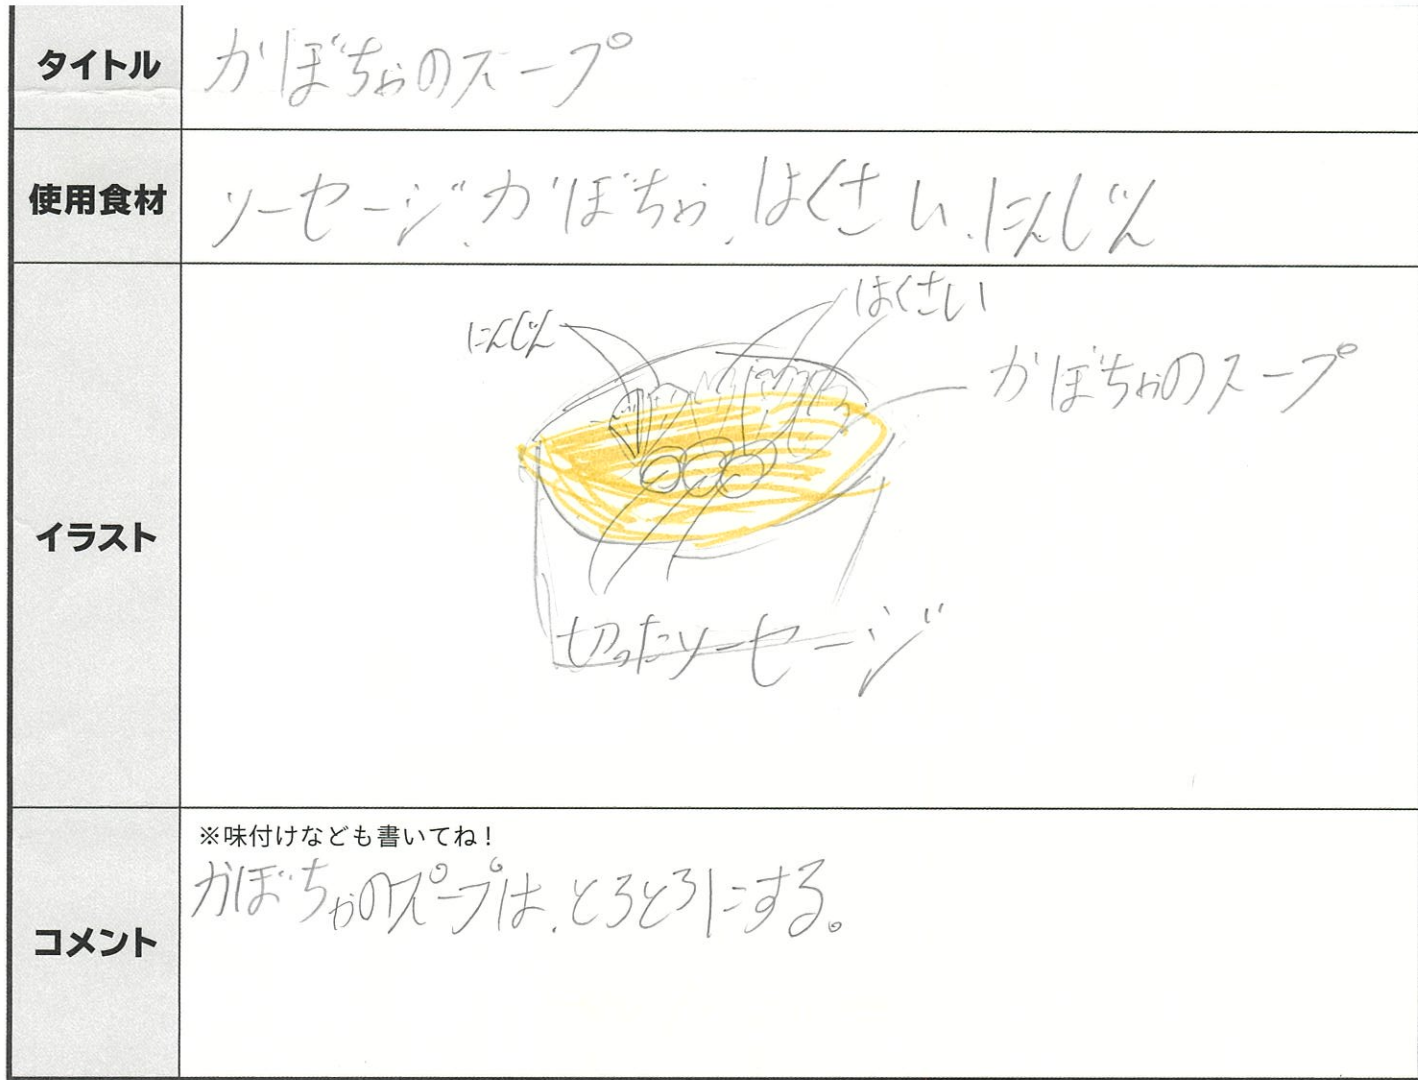 タイトル
かぼちゃのスープ
使用食材
ソーセージ、かぼちゃ、はくさい、にんじん
イラスト
はくさい
にんじん
かぼちゃのスープ
切ったソーセージ
コメント
※味付けなども書いてね!
かぼちゃのスープは、とろとろにする。